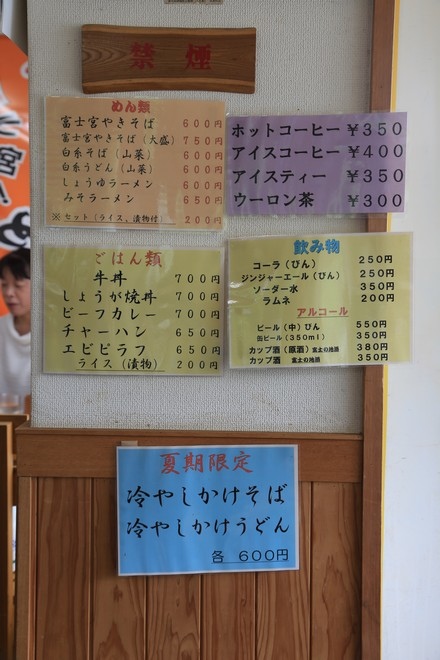 禁煙
めん類
富士宮やきそば 600円
富士宮やきそば(大盛) 750円
白糸そば(山菜) 600円
白糸うどん(山菜) 600円
しょうゆラーメン 600円
みそラーメン 650円
※セット(ライス、漬物付) 200円
ホットコーヒー ¥350
アイスコーヒー ¥400
アイスティー ¥350
ウーロン茶 ¥300
ごはん類
牛丼 700円
しょうが焼丼 700円
ビーフカレー 700円
チャーハン 650円
エビピラフ 650円
ライス(漬物) 200円
飲み物
コーラ(びん) 250円
ジンジャーエール(びん) 250円
ソーダー水 350円
ラムネ 200円
アルコール
ビール(中)びん 550円
缶ビール(350ml) 350円
カップ酒(原酒)富士の地酒 380円
カップ酒 富士の地酒 350円
夏期限定
冷やしかけそば
冷やしかけうどん
各 600円